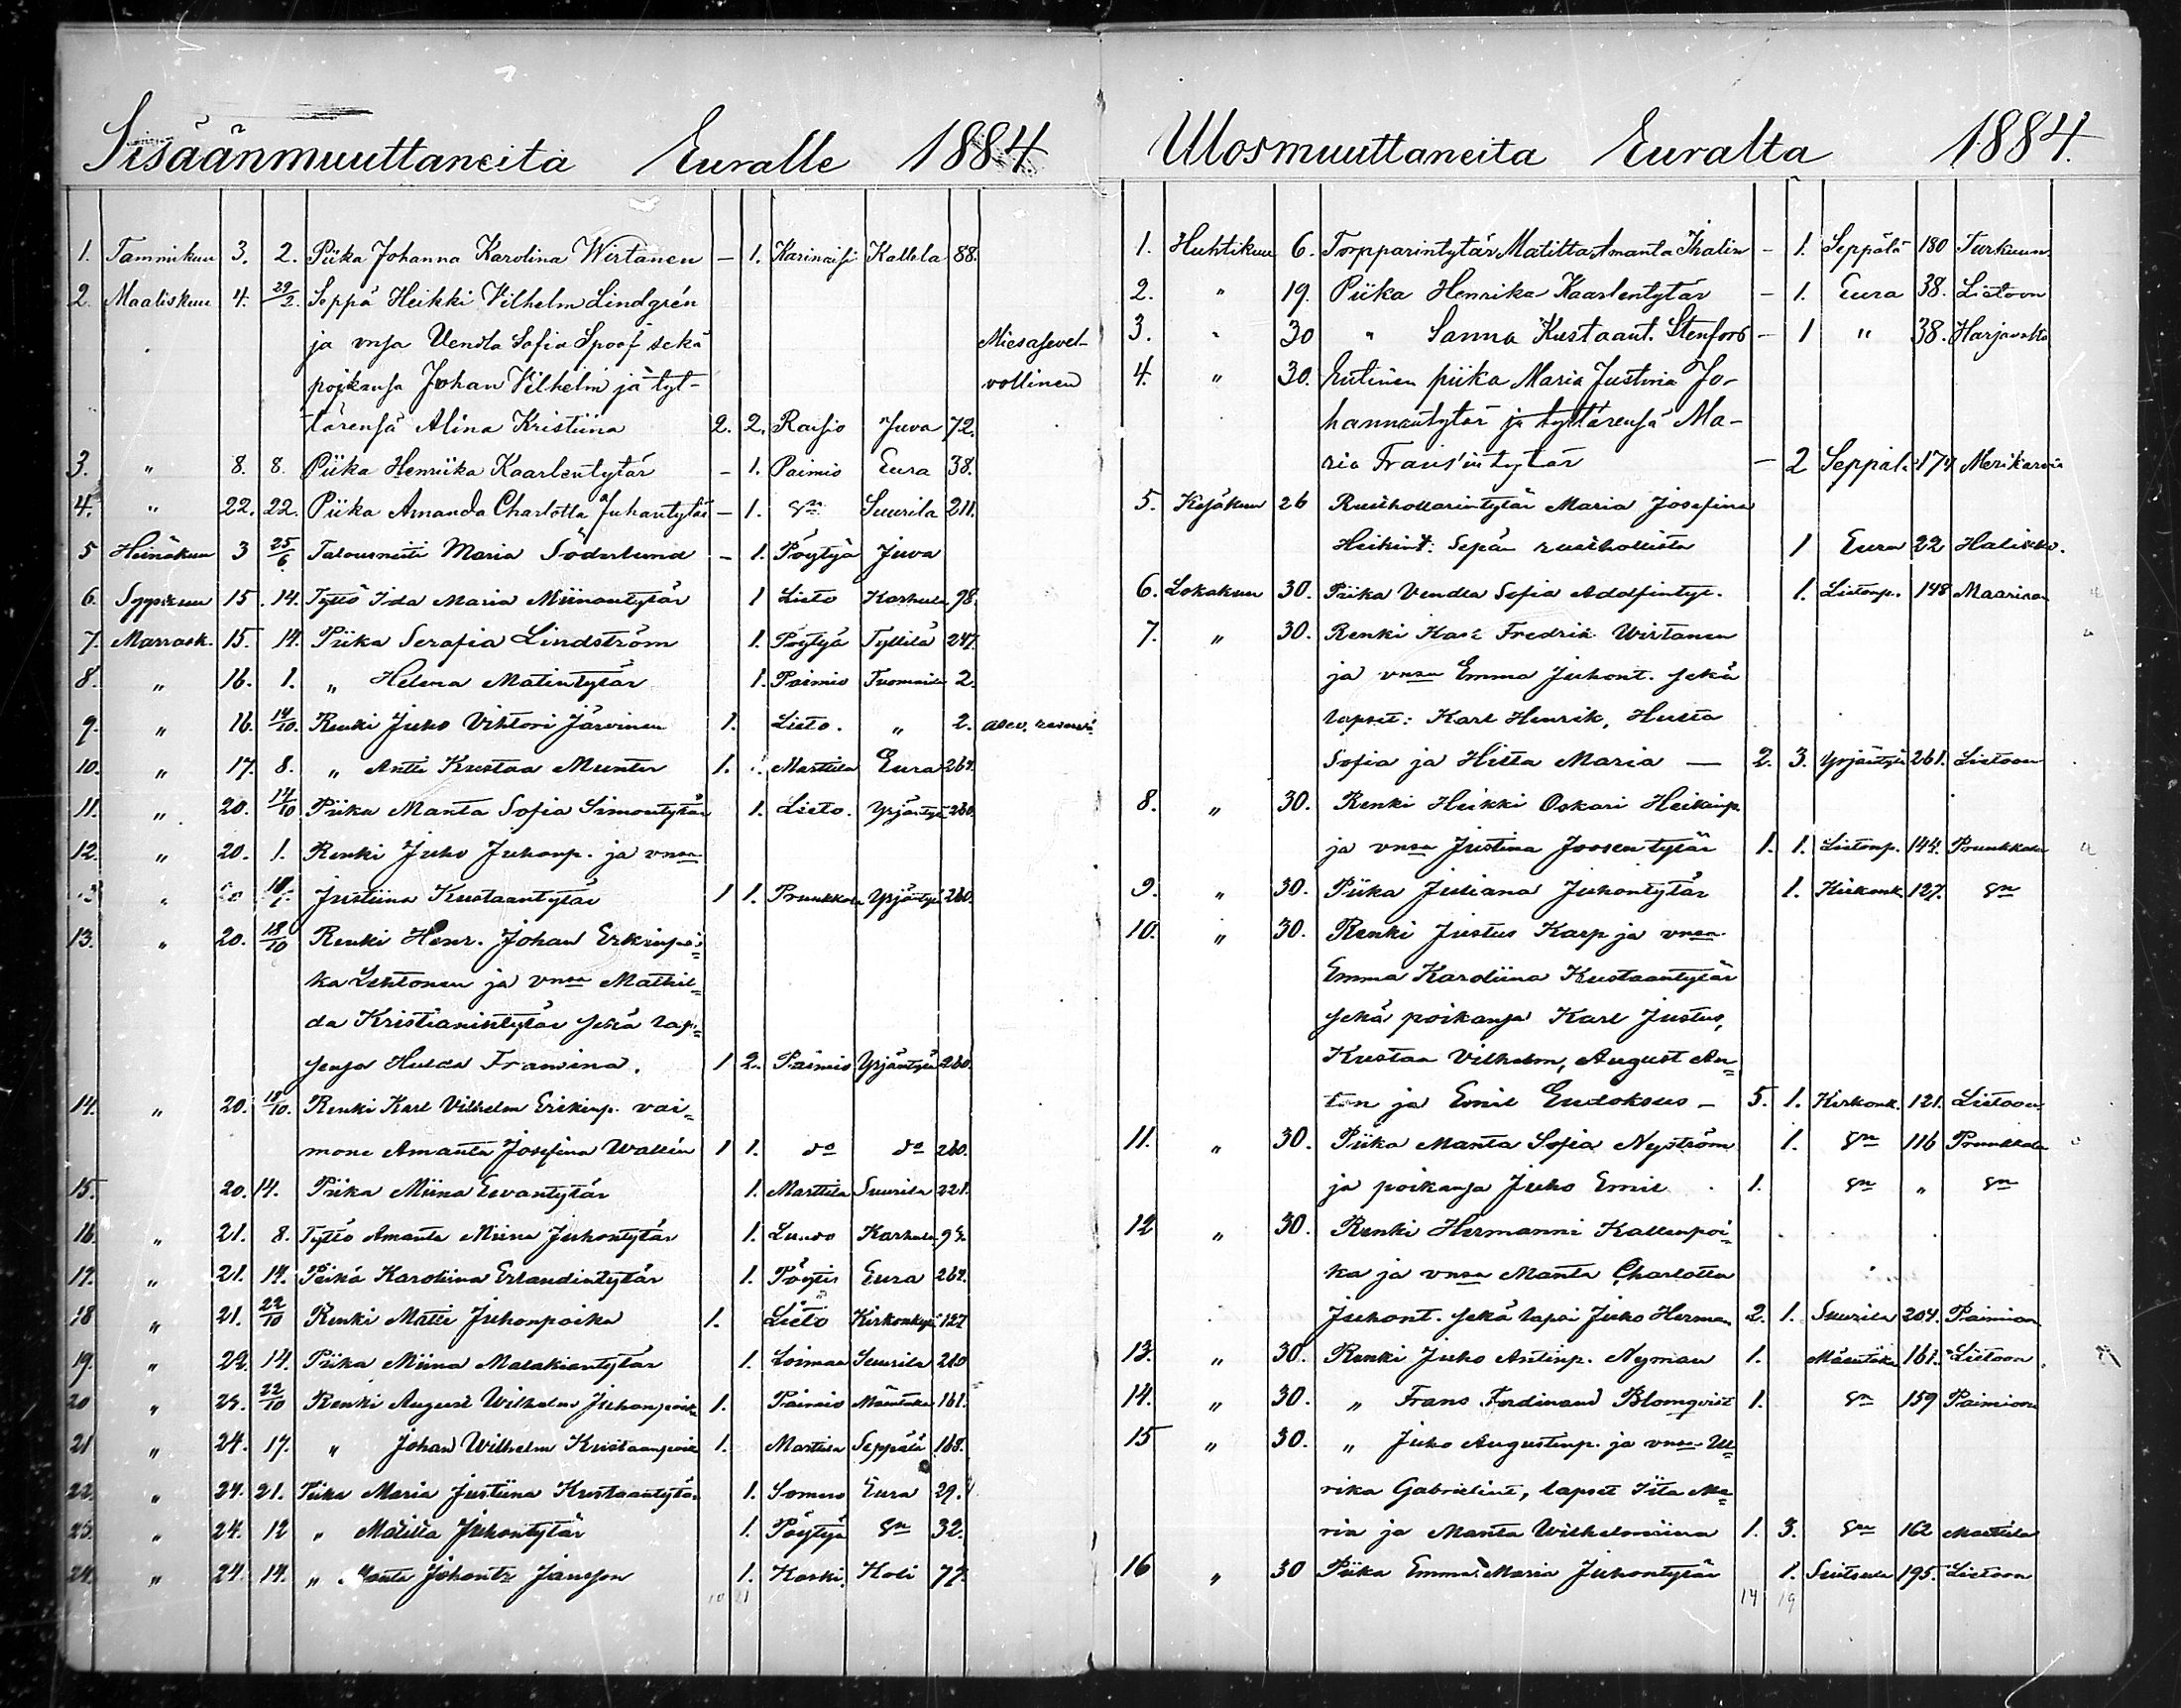 Sisäänmuuttaneita Euralle 1884.
1. Tammikuu 3. 2. Piika Johanna Karolina Wirtanen – 1. Karinaisi Kallela 88.
2. Maaliskuu 4. 29/2. Seppä Heikki Vilhelm Lindgrén
ja vnsa Vendla Sofia Spoof sekä Miesasevel-
poikansa Johan Vilhelm ja tyt- vollinen
tärensä Alina Kristiina 2. 2. Raisio Juva 72.
3. " 8. 8. Piika Henriika Kaarlentytär – 1. Paimio Eura 38.
4. " 22. 22. Piika Amanda Charlotta Juhantytär – 1. Sn Suurila 211.
5 Heinäkuu 3 25/6 Talousneiti Maria Söderlund – 1. Pöytyä Juva
6. Syyskuu 15. 14. Tyttö Ida Maria Miinantytär 1 Lieto Karhula 98.
7. Marrask. 15. 14. Piika Serafia Lindström 1. Pöytyä Tyllilä 247.
8. " 16. 1. " Helena Matintytär 1. Paimio 2.
9. " 16. 14/10. Renki Juho Vihtori Järvinen 1. Lieto. " 2. asev. reservi
10. " 17. 8. " Antti Kustaa Munter 1. Marttila Eura 264.
11. " 20. 14/10 Piika Manta Sofia Simontytär 1. Lieto. Yrjäntyä 260.
12. " 20. 1. Renki Juho Juhonp. ja vnsa
" 20 Justiina Kustaantytär 1 1. Prunkkala Yrjäntyä 260.
13. " 20. 18/10 Renki Henr. Johan Erkinpoi=
ka Lehtonen ja vnsa Mathil=
da Kristianintytär sekä lap=
sensa Hulda Fransina. 1 2. Paimio Yrjäntyä 260.
14. " 20. 18/10. Renki Karl Vilhelm Erikinp. vai=
mone Amanta Josefina Wallin 1 1. do do 260.
15. 20. 14. Piika Miina Eevantytär 1. Marttila Suurila 221.
16. " 21. 8. Tyttö Amanta Miina Juhontytär 1. Karhula
17. " 21. 14. Piika Karoliina Erlandintytär 1. Pöytis Eura 264.
18 " 21. 22/10 Renki Matti Juhonpoika 1. Lieto Kirkonkyä 127
19. " 22. 14. Piika Miina Malakiantytär 1. Loimaa Suurila 210
20 " 22/10 Renki August Wilhelm Juhonpoika 1. Paimio Mäentaka 161.
21 " 24. 17. " Johan Wilhelm Kustaanpoik 1. Marttila Seppälä 168.
22. " 24. 21. Piika Maria Justiina Kustaantytär 1. Somero Eura 29.
23. " 24. 12 " Matilta Juhontytär 1. Pöytyä Sn 32.
24. " 24. 14. " Manta Johontr Jansson 1. Koski Koli 77.
10 21
Ulosmuuttaneita Euralta 1884.
1. Huhtikuu 6. Torpparintytär Matilta Amanta Thalin – 1. Seppälä 180 Turkuun.
2. " 19. Piika Henrika Kaarlentytär – 1. Eura 38. Lietoon
3. " 30 " Sanna Kustaant. Stenfors – 1 " 38. Harjavalta
4. " 30. Entinen piika Maria Justina Jo-
hannentytär ja tyttärensä Ma-
ria Fransintytär – 2 Seppälä 174 Merikarvia
5. Kesäkuu 26 Rusthollarintytär Maria Josefina
Heikint: Sepän rustholista 1 Eura 22 Halikko.
6. Lokakuu 30. Piika Vendla Sofia Adolfintyt. 1. Lietonp. 148 Maariaan
7. " 30. Renki Karl Fredrik Wirtanen
ja vnsa Emma Juhont. sekä
lapset: Karl Henrik, Hulta
Sofia ja Hilta Maria — 2. 3. Yrjäntyä 261. Lietoon
8. " 30. Renki Heikki Oskari Heikinp.
ja vnsa Justina Joosentytär 1. 1. Lietonp. 144. Prunkkala
9. " 30. Piika Juliana Juhontytär 1. Kirkonk. 127. Sn
10. " 30. Renki Justus Karp ja vnsa
Emma Karoliina Kustaantytär
sekä poikansa Karl Justus,
Kustaa Vilhelm, August An=
ton ja Emil Eudoksus – 5. 1. Kirkonk. 121. Lietoon.
11. " 30. Piika Manta Sofia Nyström 1. Sn 116 Prunkkala
ja poikansa Juho Emil 1. Sn " Sn
12 " 30. Renki Hermanni Kallenpoi=
ka ja vnsa Manta Charlotta
Juhont. sekä lapsi Juho Herman 2. 1. Suurila 204. Paimioon
13. " 30. Renki Juho Antinp. Nyman 1. Mäentaka 161. Lietoon.
14. " 30. " Frans Ferdinand Blomqvist 1. Sn 159 Paimioon
15 " 30. " Juho Augustinp. ja vnsa Ul=
rika Gabrielint, lapset Iita Ma=
ria ja Manta Wilhelmiina 1. 3. Sn 162 Marttila
16 " 30 Piika Emma Maria Juhontytär 1. 195. Lietoon
14 19